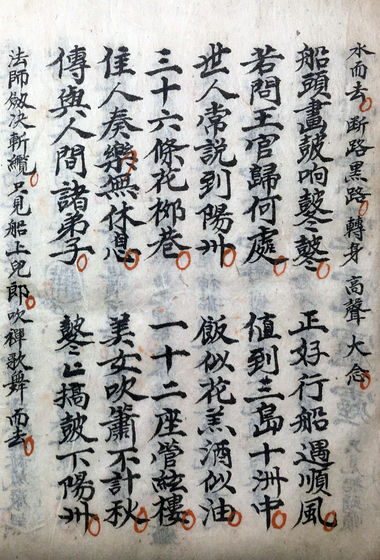 水而去断路黑路轉身 高聲 大念
船頭畫皷响鼕鼕 正好行船遇順風
若問王官歸何處 值到三島十洲中
世人常説到陽州 飯似花羔酒似油
三十六條花柳巷 一十二座管絃樓
佳人奏樂無休息 美女吹簫不計秋
傳與人間諸弟子 鼕〻搞皷下陽州
法師劔决斬纜只見船上兒郎吹禪歌舞而去